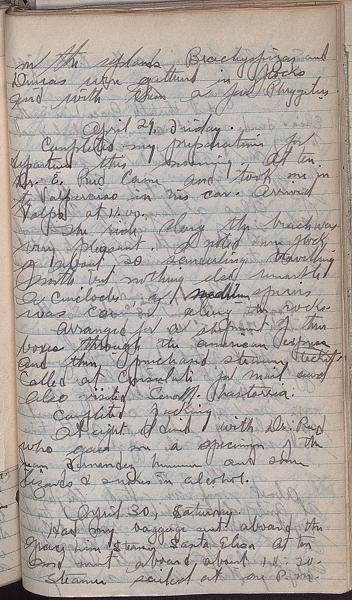 in the uplands Brachyspizas and
Diucas were gathered in flocks
and with them a few Phrygilus.
April 29, Friday.
Completed my preparations for
departure this morning. At ten
Dr. E. Reed came and took me in
to Valparaiso in his car. Arrived
Valpo at 11:00.
The ride along the beach was
very pleasant. I noted one flock
of about 30 travelling
south but nothing else remarkable
A Cinclodes, of medium
was common along the rocks.
Arranged for a shipment of three
boxes through the American Express
and then purchased steamer ticket.
Called at Consulate for mail and
also visited
Completed packing.
At night I dined with Dr. Reed
who gave me a specimen of the
Juan Fernandez hummer and some
lizards & snakes in alcohol.
April 30, Saturday.
Had my baggage sent aboard the
Grace Line Steamer Santa Elisa at ten
and went aboard about 11:30.
Steamer sailed at one P.m.